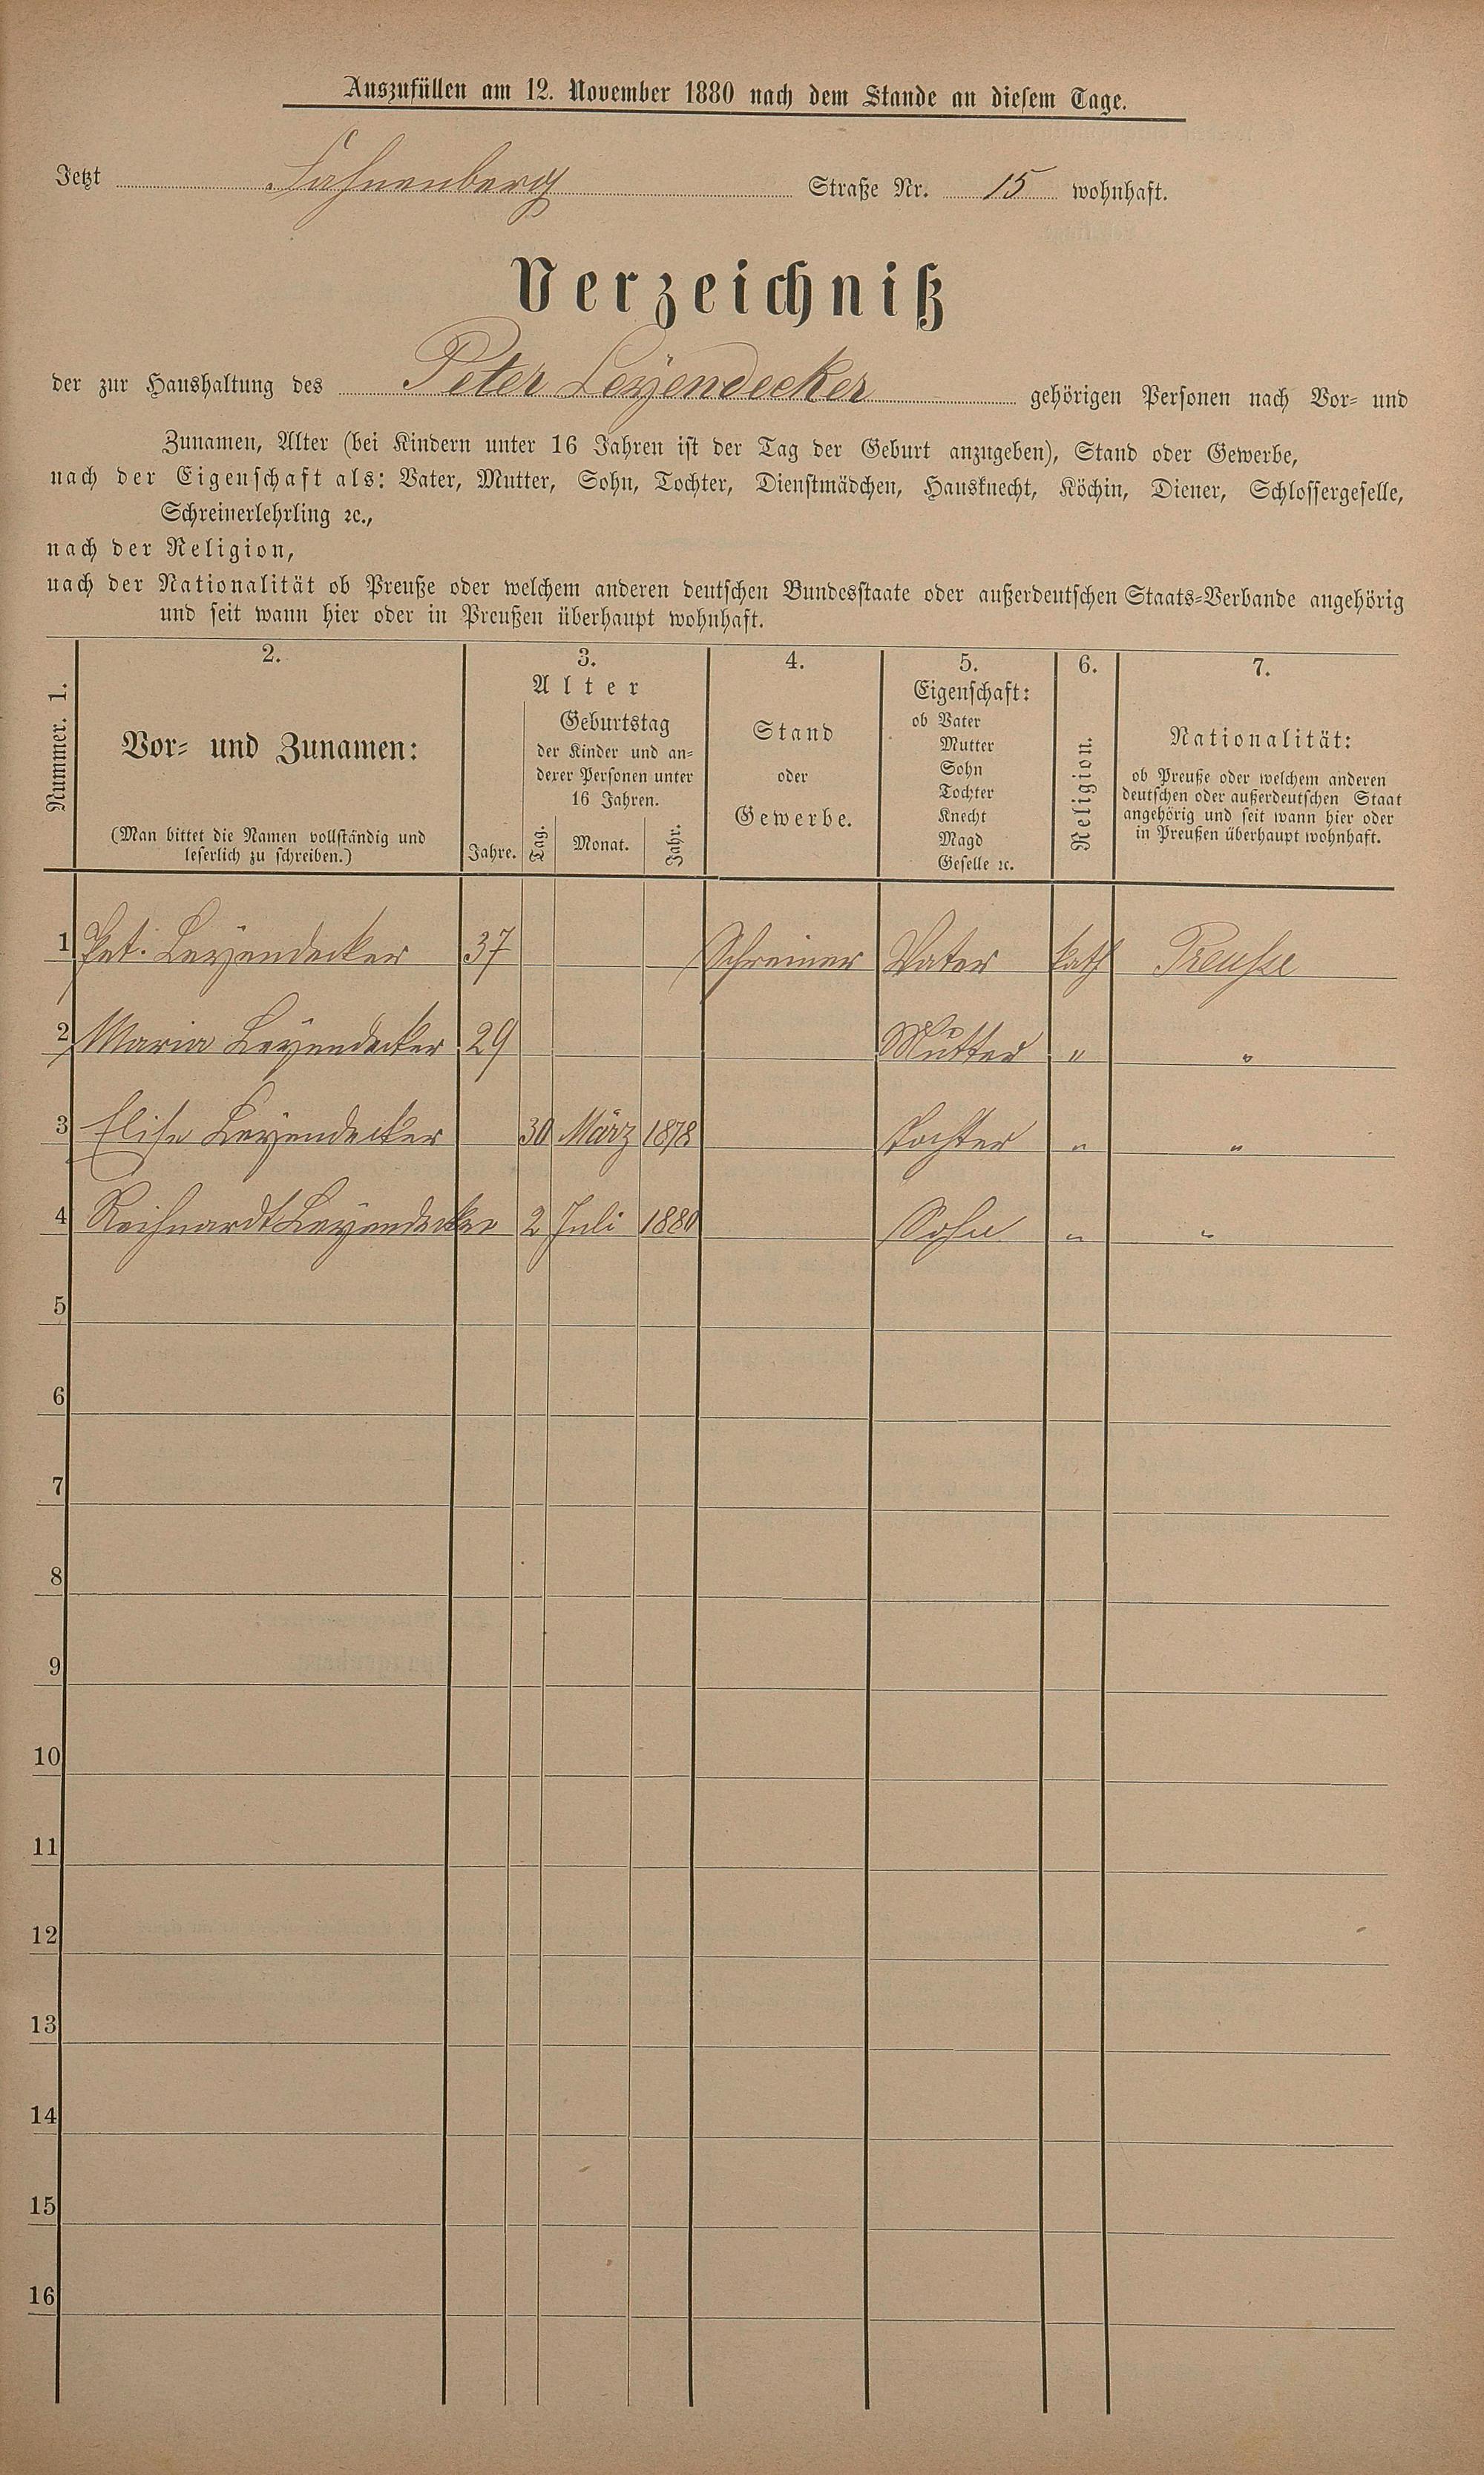 Auszufüllen am 12. November 1880 nach dem Stande an diesem Tage.
Jetzt Hahnenberg Straße Nr. 15 wohnhaft.
Verzeichniß
der zur Haushaltung des Peter Leÿendecker gehörigen Personen nach Vor- und
Zunamen, Alter (bei Kindern unter 16 Jahren ist der Tag der Geburt anzugeben), Stand oder Gewerbe,
nach der Eigenschaft als: Vater, Mutter, Sohn, Tochter, Dienstmädchen, Hausknecht, Köchin, Diener, Schlossergeselle,
Schreinerlehrling ꝛc.,
nach der Religion,
nach der Nationalität ob Preuße oder welchem anderen deutschen Bundesstaate oder außerdeutschen Staats-Verbande angehörig
und seit wann hier oder in Preußen überhaupt wohnhaft.
Nummer. 1.
2.
Vor- und Zunamen:
(Man bittet die Namen vollständig und
leserlich zu schreiben.)
3.
Alter
Jahre.
Geburtstag
der Kinder und an-
derer Personen unter
16 Jahren.
Tag. Monat. Jahr.
4.
Stand
oder
Gewerbe.
5.
Eigenschaft:
ob Vater
Mutter
Sohn
Tochter
Knecht
Magd
Geselle ꝛc.
6.
Religion.
7.
Nationalität:
ob Preuße oder welchem anderen
deutschen oder außerdeutschen Staat
angehörig und seit wann hier oder
in Preußen überhaupt wohnhaft.
1 Pet. Leÿendecker 37 Schreiner Vater kath Preuße
2 Maria Leÿendecker 29 Mutter " "
3 Elise Leÿendecker 30 März 1878 Tochter " "
4 Leÿendecker 2 Juli 1880 Sohn " "
5
6
7
8
9
10
11
12
13
14
15
16